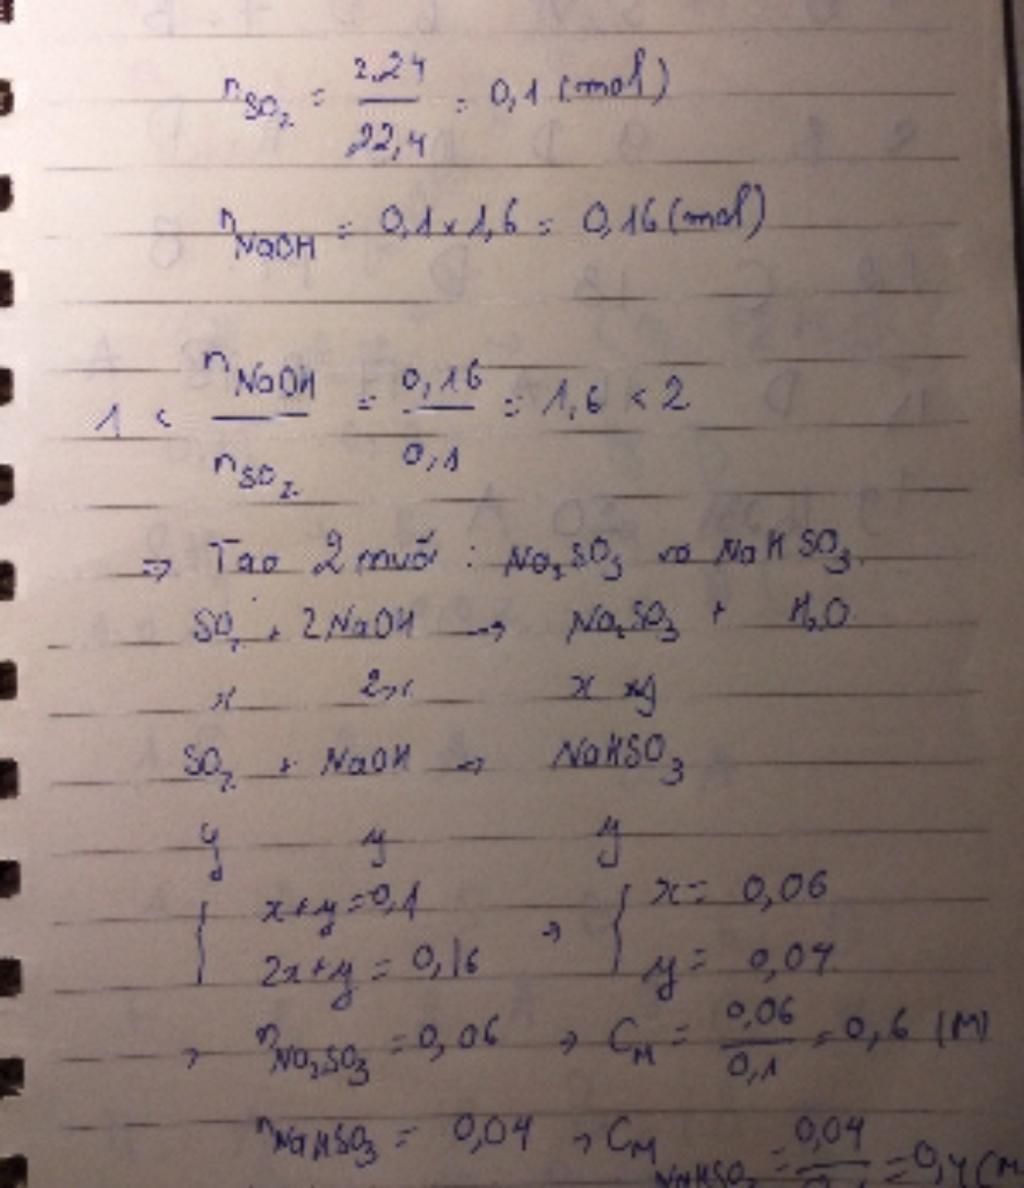 nSO2 = 2.24/22,4 = 0,1 (mol)
nNaOH = 0,1 x 1,6 = 0,16 (mol)
1 < nNaOH/nSO2 = 0,16/0,1 = 1,6 < 2
=> Tạo 2 muối : Na2SO3 và NaHSO3
SO2 + 2NaOH → Na2SO3 + H2O
x 2x x
SO2 + NaOH → NaHSO3
y y y
{ x+y=0,1 → { x = 0,06
2x+y = 0,16 y = 0,04
→ nNa2SO3 = 0,06 → CM = 0,06/0,1 = 0,6 (M)
nNaHSO3 = 0,04 → CM NaHSO3 = 0,04/0,1 = 0,4 (M